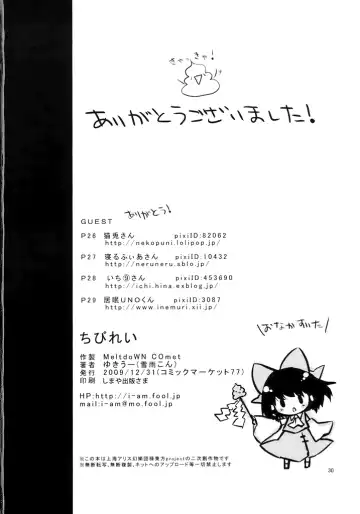 きゃっきゃ!
ありがとうございました!
GUEST ありがとう!
P26 猫兎さん pixiID:82062
http://nekopuni.lolipop.jp/
P27 寝るふぃあさん pixiID:10432
http://neruneru.sblo.jp/
P28 いち⑨さん pixiID:453690
http://ichi.hina.exblog.jp/
P29 居眠UNOくん pixiID:3087
http://www.inemuri.xii.jp/
おなかすいた!
ちびれい
作製 MeltdoWN COmet
著者 ゆきうー(雪雨こん)
発行 2009/12/31(コミックマーケット77)
印刷 しまや出版さま
HP:http://i-am.fool.jp/
mail:i-am@mo.fool.jp
※この本は上海アリス幻樂団様東方projectの二次創作物です
※無断転写、無断複製、ネットへのアップロード等一切禁止します
30